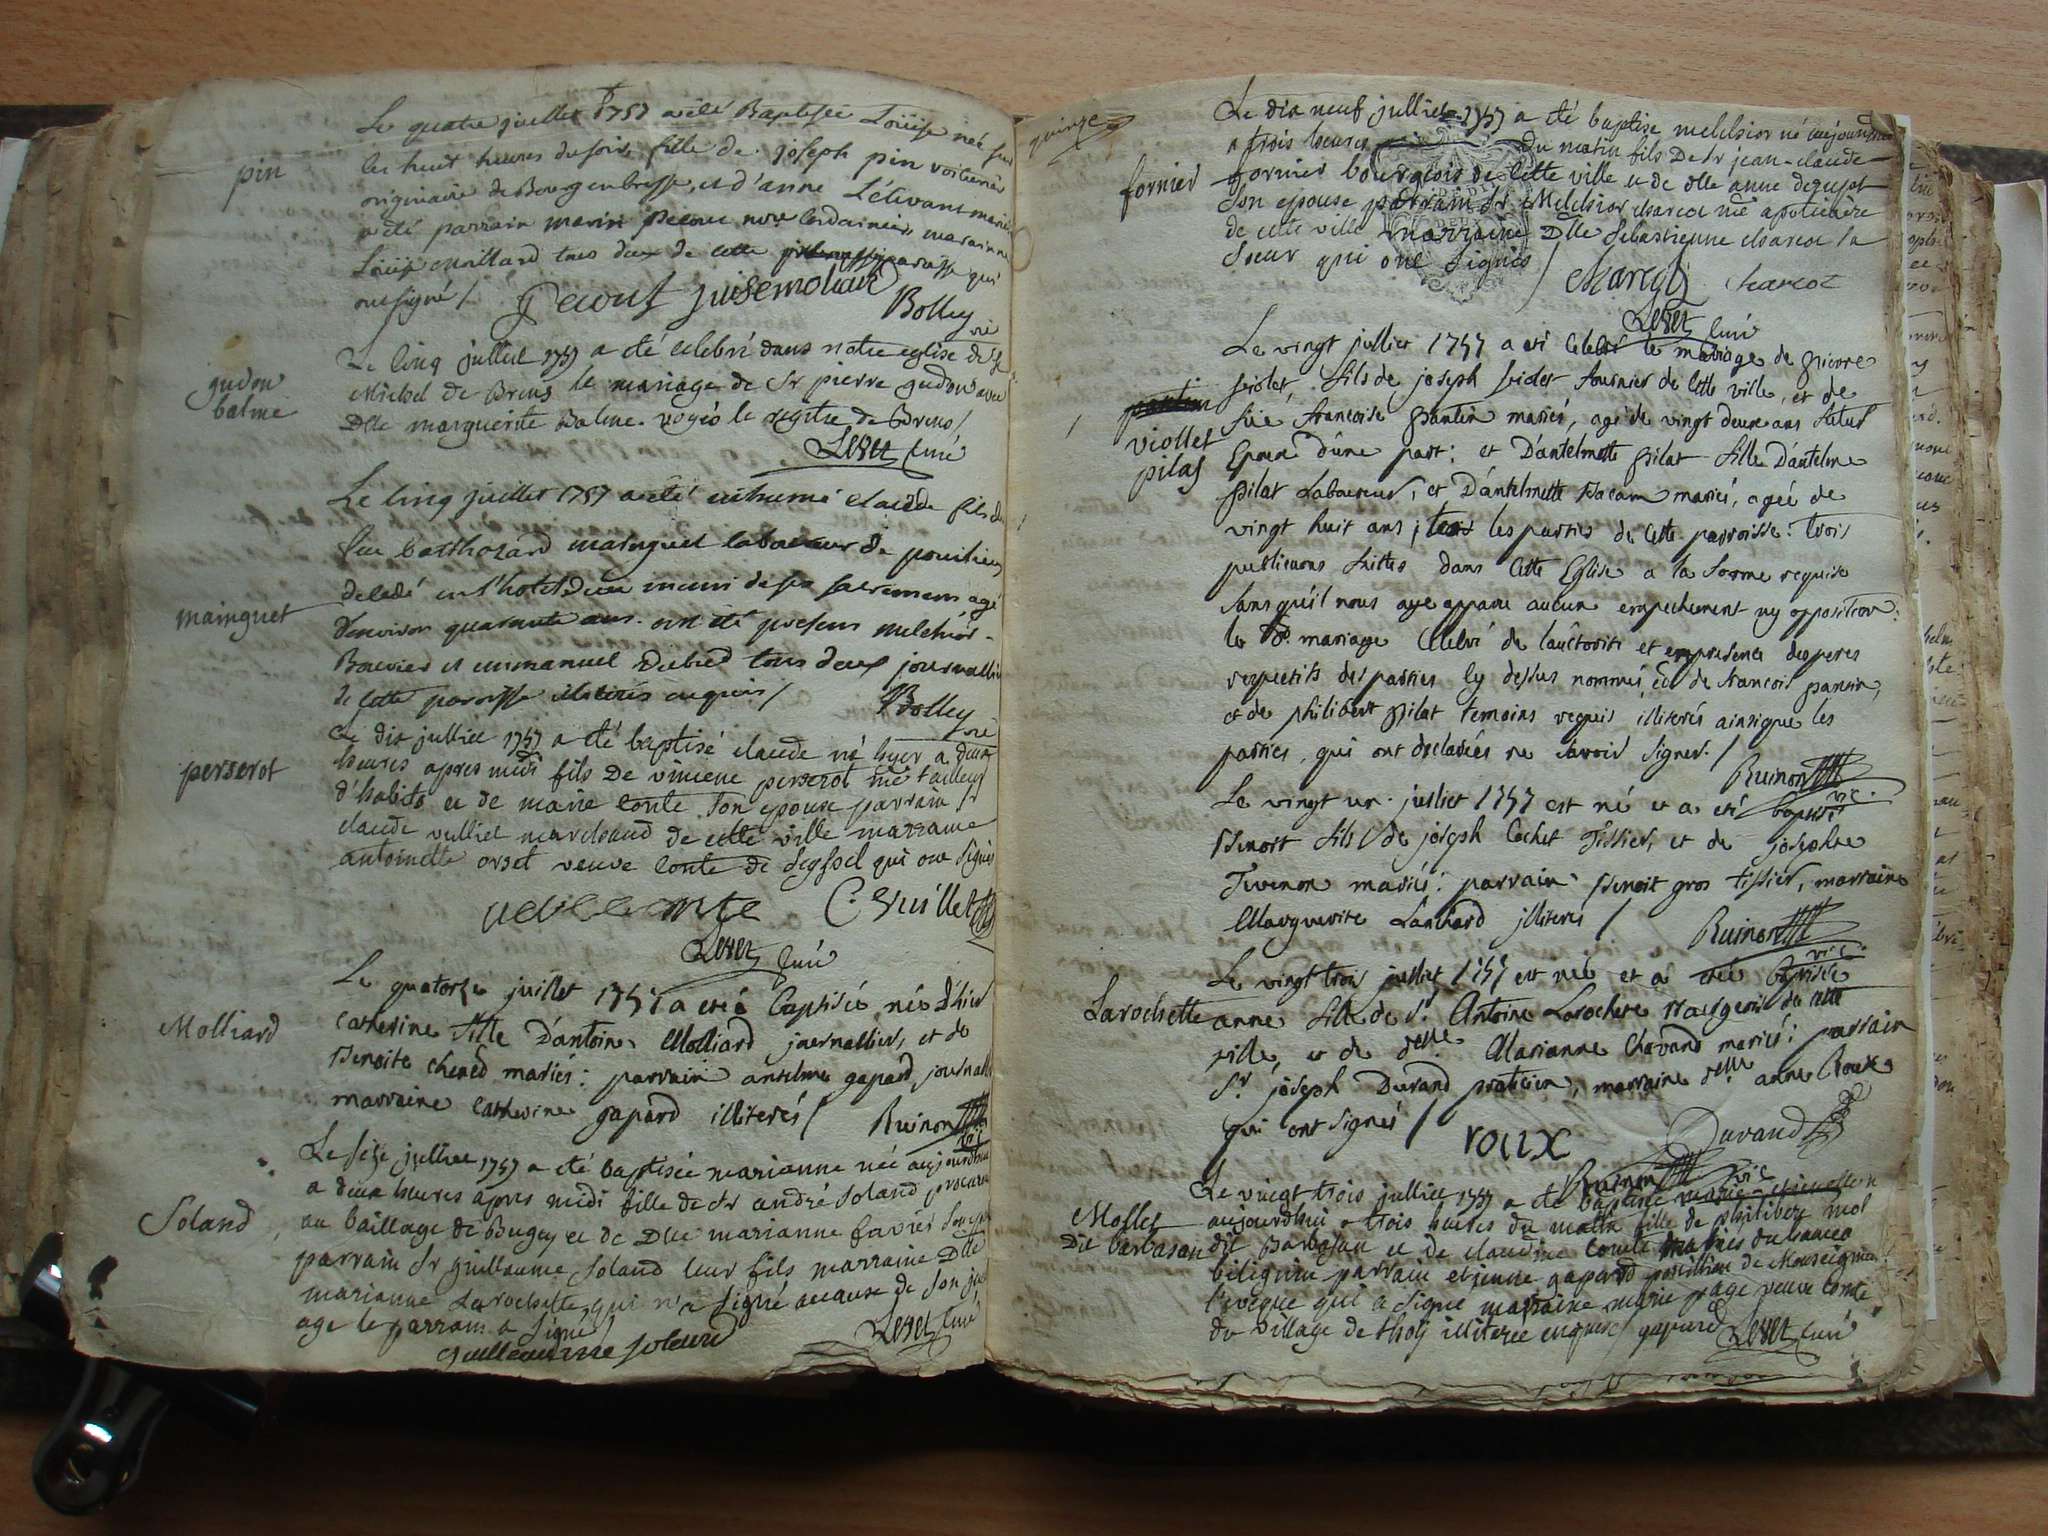 Le quatre juillet 1757 a été Baptisée Loüise née sur
les huit heures du soir, fille de joseph pin voiturier
originaire de Bourg en bresse, et d'anne Létivant mariés
a été parrain marin pecout mre Cordonnier, marainne
Loüise moillard tous deux de cette paroisse qui
ont signé /
pin
pecout Luisemoliard
Bolley vic
Le cinq julliet 1757 a été celebré dans notre eglise de St
Michel de Brens le mariage de Sr pierre gudon avec
Dlle marguerite Balme. voyés le registre de Brens /
gudon
balme
Levet Curé
Le cinq juillet 1757 a été inhumé claude fils de
feu Batthazard mainguet laboureur de
decedé en l'hotel Dieu muni de ses sacremens agé
d'environ quarante ans. ont été presens melchior
Bouvier et emmanuel tous deux journallier
de cette paroisse illiterés enquis /
mainguet
Bolley vic
Le dix julliet 1757 a été baptisé claude né hyer a deux
heures apres midi fils de vincent perserot me tailleur
d'habits et de marie conte son epouse parrain Sr
claude vulliet marchand de cette ville marraine
antoinette orset veuve conte de Seyssel qui ont signés
perserot
veuve conte C. Vuillet
Levet Curé
Le quatorze juillet 1757 a eté baptisée née d'hier
Catherine fille D'antoine Molliard journallier, et de
Benoite mariés: parrain antelme gapard journallier
marraine Catherine gapard illiterés /
Molliard
Ruinon vic
Le seize julliet 1757 a été baptisée marianne née aujourdhui
a deux heures apres midi fille de Sr andré Soland procureur
au baillage de Bugey et de Dlle marianne favier son epouse
parrain Sr guillaume Soland leur fils marraine Dlle
marianne Larochette qui n'a signé acause de son jeune
age le parrain a signé /
Soland
guilleaume soland
Levet Curé
quinze
Le dix neuf julliet 1757 a été baptise melchior né aujourdhui
a trois heures du matin fils De Sr jean-claude
fornier bourgeois de cette ville et de dlle anne dequjet
son epouse parrain Sr Melchior charcot me apoticaire
de cette ville marraine Dlle Sebastienne charcot sa
soeur qui ont signés /
fornier
charcot charcot
Levet Curé
Le vingt julliet 1757 a eté celebré le mariage de pierre
violet, fils de joseph violet fournier de cette ville, et de
feüe francoise pantin mariés, agé de vingt deux ans futur
Epoux d'une part; et D'antelmette pilat fille D'antelme
pilat Laboureur, et D'antelmette mariés, agée de
vingt huit ans, tous les parties de cette parroisse: trois
publications faittes dans cette Eglise a la forme requise
sans qu'il nous aye apparu aucun empechement ny opposition:
le d. mariage celebré de l'auctorité et en presence des peres
respectifs des parties cy dessus nommés, et de francois pantin,
et de philibert pilat temoins requis illiterés ainsi que les
parties, qui ont declarées ne savoir signer. /
pantin
viollet
pilat
Ruinon vic.
Le vingt un julliet 1757 est né et a eté baptisé
Benoit fils de joseph Cochet Tissier, et de josephte
Tevenon mariés: parrain Benoit gros tissier, marraine
Marguerite Lanchard illiterés /
Ruinon vic.
Le vingt trois julliet 1757 est née et a été baptisée
anne fille de Sr Antoine Larochette Bourgeois de cette
ville, et de delle Marianne Chavand mariés: parrain
Sr joseph Durand praticien, marraine delle anne Roux
qui ont signés /
Larochette
roux Durand
Ruinon vic
Le vingt trois julliet 1757 a été baptisée marie
aujourdhui a trois heures du matin fille de philibert mol
dit Barbasan et de claudine conte mariés du hameau
biliguin parrain etienne gapard postillon de Monseigneur
l'eveque qui a signé marraine marie page veuve conte
du village de thoy illiteree enquise / gapard
Mollet
Dit barbasan
Levet Curé